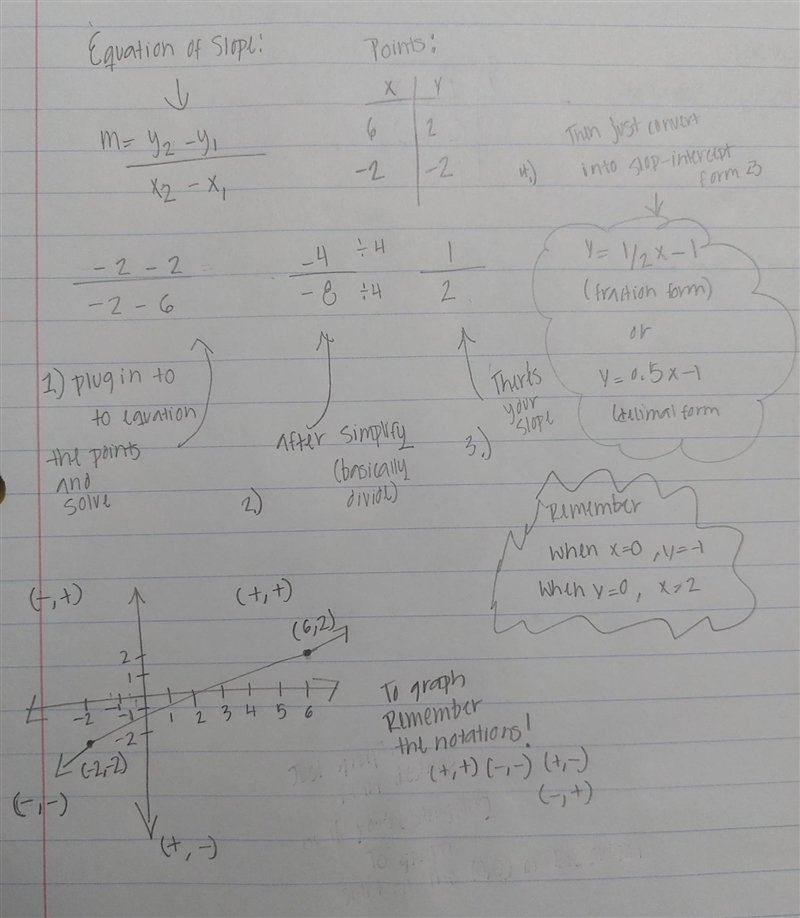 Equation of Slope:
m= y₂ - y₁
x₂ - x₁
Points:
X Y
6 2
-2 -2
-2 - 2
-2 - 6
-4 ÷4
-8 ÷4
1
2
1.) plug in to
to equation
the points
and
solve
2.)
After simplify
(basically
divide)
3.)
your
slope
4.)
Then just convert
into slop-intercept
form
y= 1/2 x - 1
(fraction form)
or
y= 0.5x - 1
(decimal form
Remember
when x=0, y=-1
when y=0, x=2
(-,+)
(+,+)
(6,2)
2
1
-2 -1 1 2 3 4 5 6
-1
-2
(-2,-2)
(-,-)
(+,-)
To graph
Remember
the notations!
(+,+) (-,-) (+,-)
(-,+)